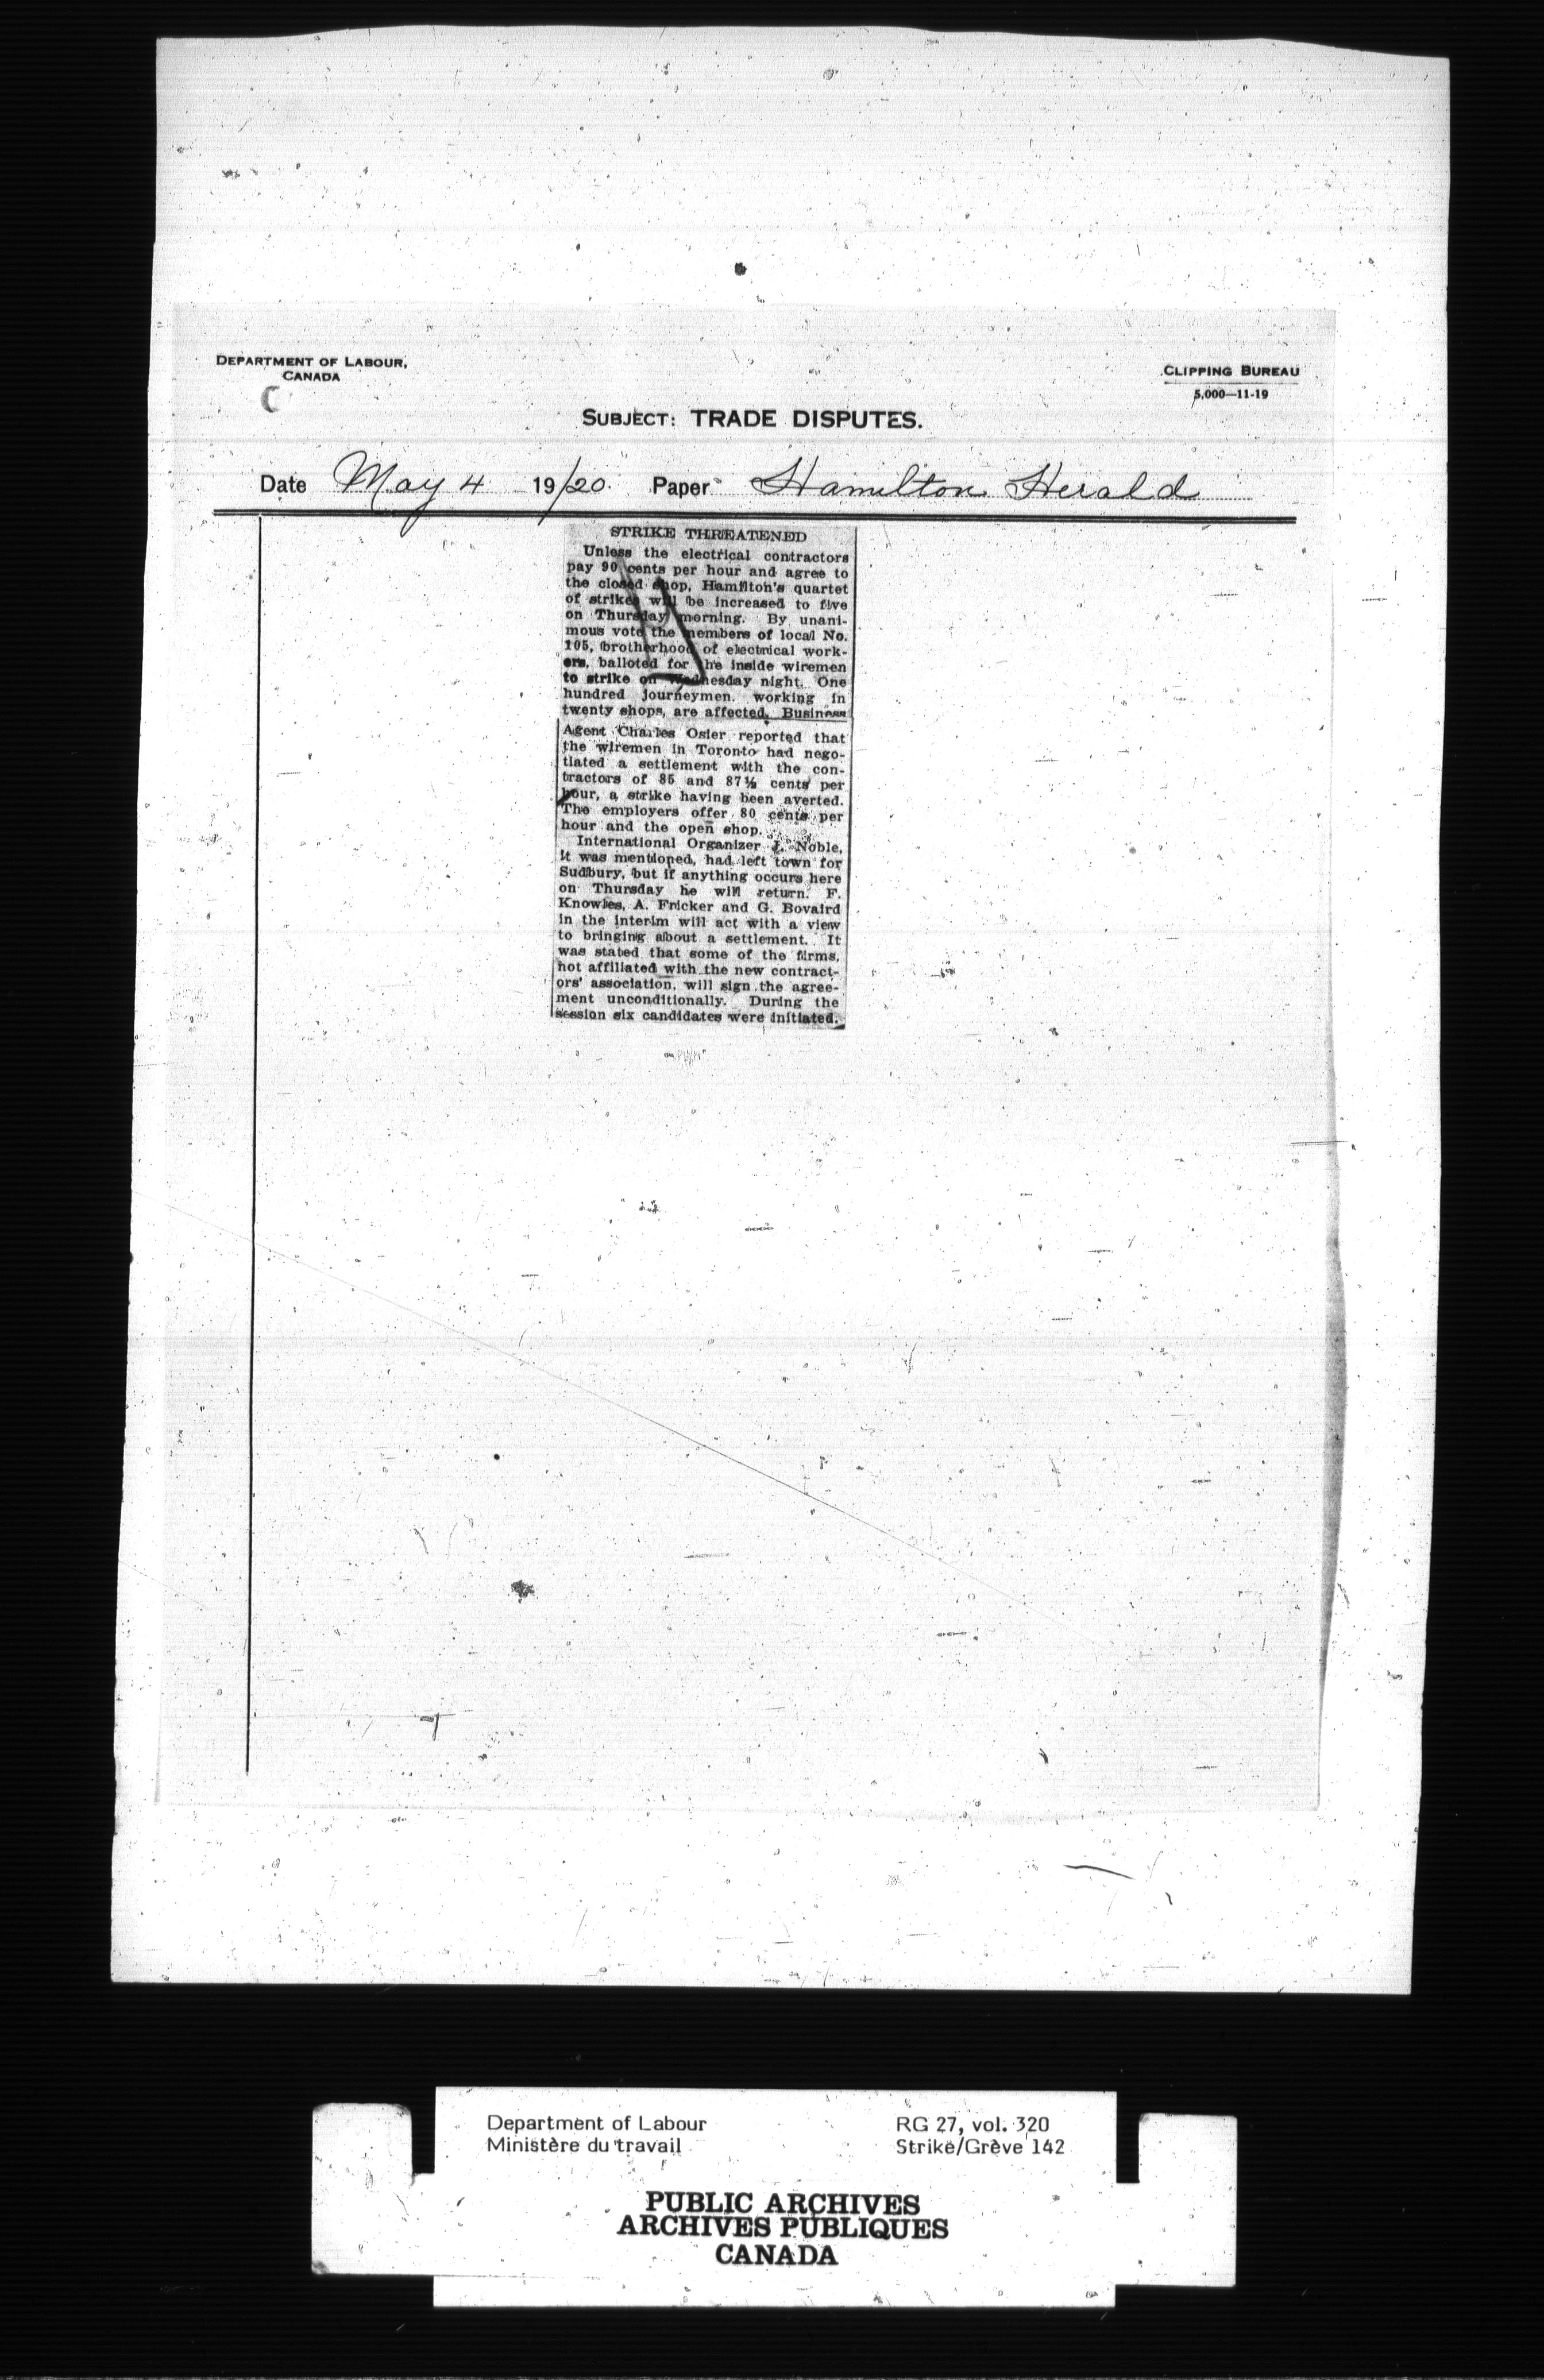 DEPARTMENT OF LABOUR,
CANADA
C
CLIPPING BUREAU
5,000—11-19
SUBJECT: TRADE DISPUTES.
Date May 4 19/20 Paper Hamilton Herald
STRIKE THREATENED
Unless the electrical contractors
pay 90 cents per hour and agree to
the closed shop, Hamilton's quartet
of strikes will be increased to five
on Thursday morning. By unani-
mous vote the members of local No.
105, brotherhood of electrical work-
ers, balloted for the inside wiremen
to strike on Wednesday night. One
hundred journeymen, working in
twenty shops, are affected. Business
Agent Charles Osier reported that
the wiremen in Toronto had nego-
tiated a settlement with the con-
tractors of 85 and 87½ cents per
hour, a strike having been averted.
The employers offer 80 cents per
hour and the open shop.
International Organizer J. Noble,
it was mentioned, had left town for
Sudbury, but if anything occurs here
on Thursday he will return. F.
Knowles, A. Fricker and G. Bovaird
in the interim will act with a view
to bringing about a settlement. It
was stated that some of the firms,
not affiliated with the new contract-
ors' association, will sign the agree-
ment unconditionally. During the
session six candidates were initiated.
Department of Labour
Ministère du travail
RG 27, vol. 320
Strike/Grève 142
PUBLIC ARCHIVES
ARCHIVES PUBLIQUES
CANADA